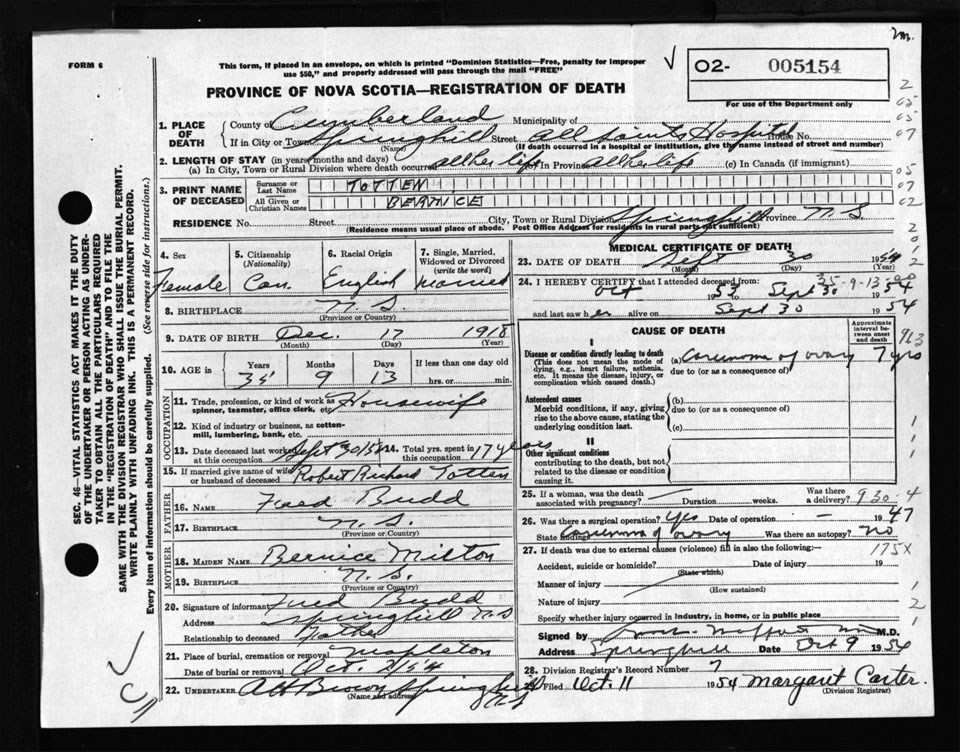 2m.
FORM 6
This form, if placed in an envelope, on which is printed "Dominion Statistics—Free, penalty for improper
use $50," and properly addressed will pass through the mail "FREE"
O2- 005154
For use of the Department only
PROVINCE OF NOVA SCOTIA—REGISTRATION OF DEATH
1. PLACE OF DEATH
County of Cumberland Municipality of
If in City or Town Springhill Street All Saints Hospital House No.
(Name) (If death occurred in a hospital or institution, give the name instead of street and number)
2. LENGTH OF STAY (in years, months and days)
(a) In City, Town or Rural Division where death occurred all her life (b) In Province all her life (c) In Canada (if immigrant)
3. PRINT NAME OF DECEASED
Surname or Last Name TOTTEN
All Given or Christian Names BERNICE
RESIDENCE No. Street City, Town or Rural Division Springhill Province N.S.
(Residence means usual place of abode. Post Office Address for residents in rural parts not sufficient)
4. Sex
Female
5. Citizenship (Nationality)
Can.
6. Racial Origin
English
7. Single, Married, Widowed or Divorced (write the word)
Married
8. BIRTHPLACE N.S.
(Province or Country)
9. DATE OF BIRTH Dec. 17 1918
(Month) (Day) (Year)
10. AGE in Years Months Days If less than one day old
35 9 13 hrs. or min.
OCCUPATION
11. Trade, profession, or kind of work as Housewife
spinner, teamster, office clerk, etc.
12. Kind of industry or business, as cotten-
mill, lumbering, bank, etc.
13. Date deceased last worked at this occupation Sept 30/54
14. Total yrs. spent in this occupation 17 years
15. If married give name of wife or husband of deceased Robert Richard Totten
FATHER
16. Name Fred Budd
17. Birthplace N.S.
(Province or Country)
MOTHER
18. Maiden Name Bernice Milton
19. Birthplace N.S.
(Province or Country)
20. Signature of informant Fred Budd
Address Springhill N.S
Relationship to deceased Father
21. Place of burial, cremation or removal Mapleton
Date of burial or removal Oct. 2/54
22. Undertaker A H Brown Springhill N.S
(Name and address)
MEDICAL CERTIFICATE OF DEATH
23. DATE OF DEATH Sept 30 1954
(Month) (Day) (Year)
35-9-13
24. I HEREBY CERTIFY that I attended deceased from:
Oct 1953 to Sept 30 1954
and last saw her alive on Sept 30 1954
CAUSE OF DEATH
Approximate interval between onset and death
I
Disease or condition directly leading to death (a) Carcinoma of ovary 7 yrs
(This does not mean the mode of dying, e.g., heart failure, asthenia, etc. It means the disease, injury, or complication which caused death.)
due to (or as a consequence of)
Antecedent causes (b)
Morbid conditions, if any, giving rise to the above cause, stating the underlying condition last.
due to (or as a consequence of)
(c)
II
Other significant conditions
contributing to the death, but not related to the disease or condition causing it.
25. If a woman, was the death associated with pregnancy? — Duration weeks. Was there a delivery?
930-4
26. Was there a surgical operation? yes Date of operation — 1947
State findings Carcinoma of ovary Was there an autopsy? No
27. If death was due to external causes (violence) fill in also the following:—
175X
Accident, suicide or homicide? Date of injury 19
(State which)
Manner of injury
(How sustained)
Nature of injury
Specify whether injury occurred in industry, in home, or in public place
Signed by M.D.
Address Springhill Date Oct 9 1954
28. Division Registrar's Record Number 7
Filed Oct. 11 1954 Margaret Carter.
(Division Registrar)
2
05
05
07
05
07
02
2
963
SEC. 46—VITAL STATISTICS ACT MAKES IT THE DUTY
OF THE UNDERTAKER OR PERSON ACTING AS UNDER-
TAKER TO OBTAIN ALL THE PARTICULARS REQUIRED
IN THE "REGISTRATION OF DEATH" AND TO FILE THE
SAME WITH THE DIVISION REGISTRAR WHO SHALL ISSUE THE BURIAL PERMIT.
WRITE PLAINLY WITH UNFADING INK. THIS IS A PERMANENT RECORD.
Every item of information should be carefully supplied. (See reverse side for instructions.)